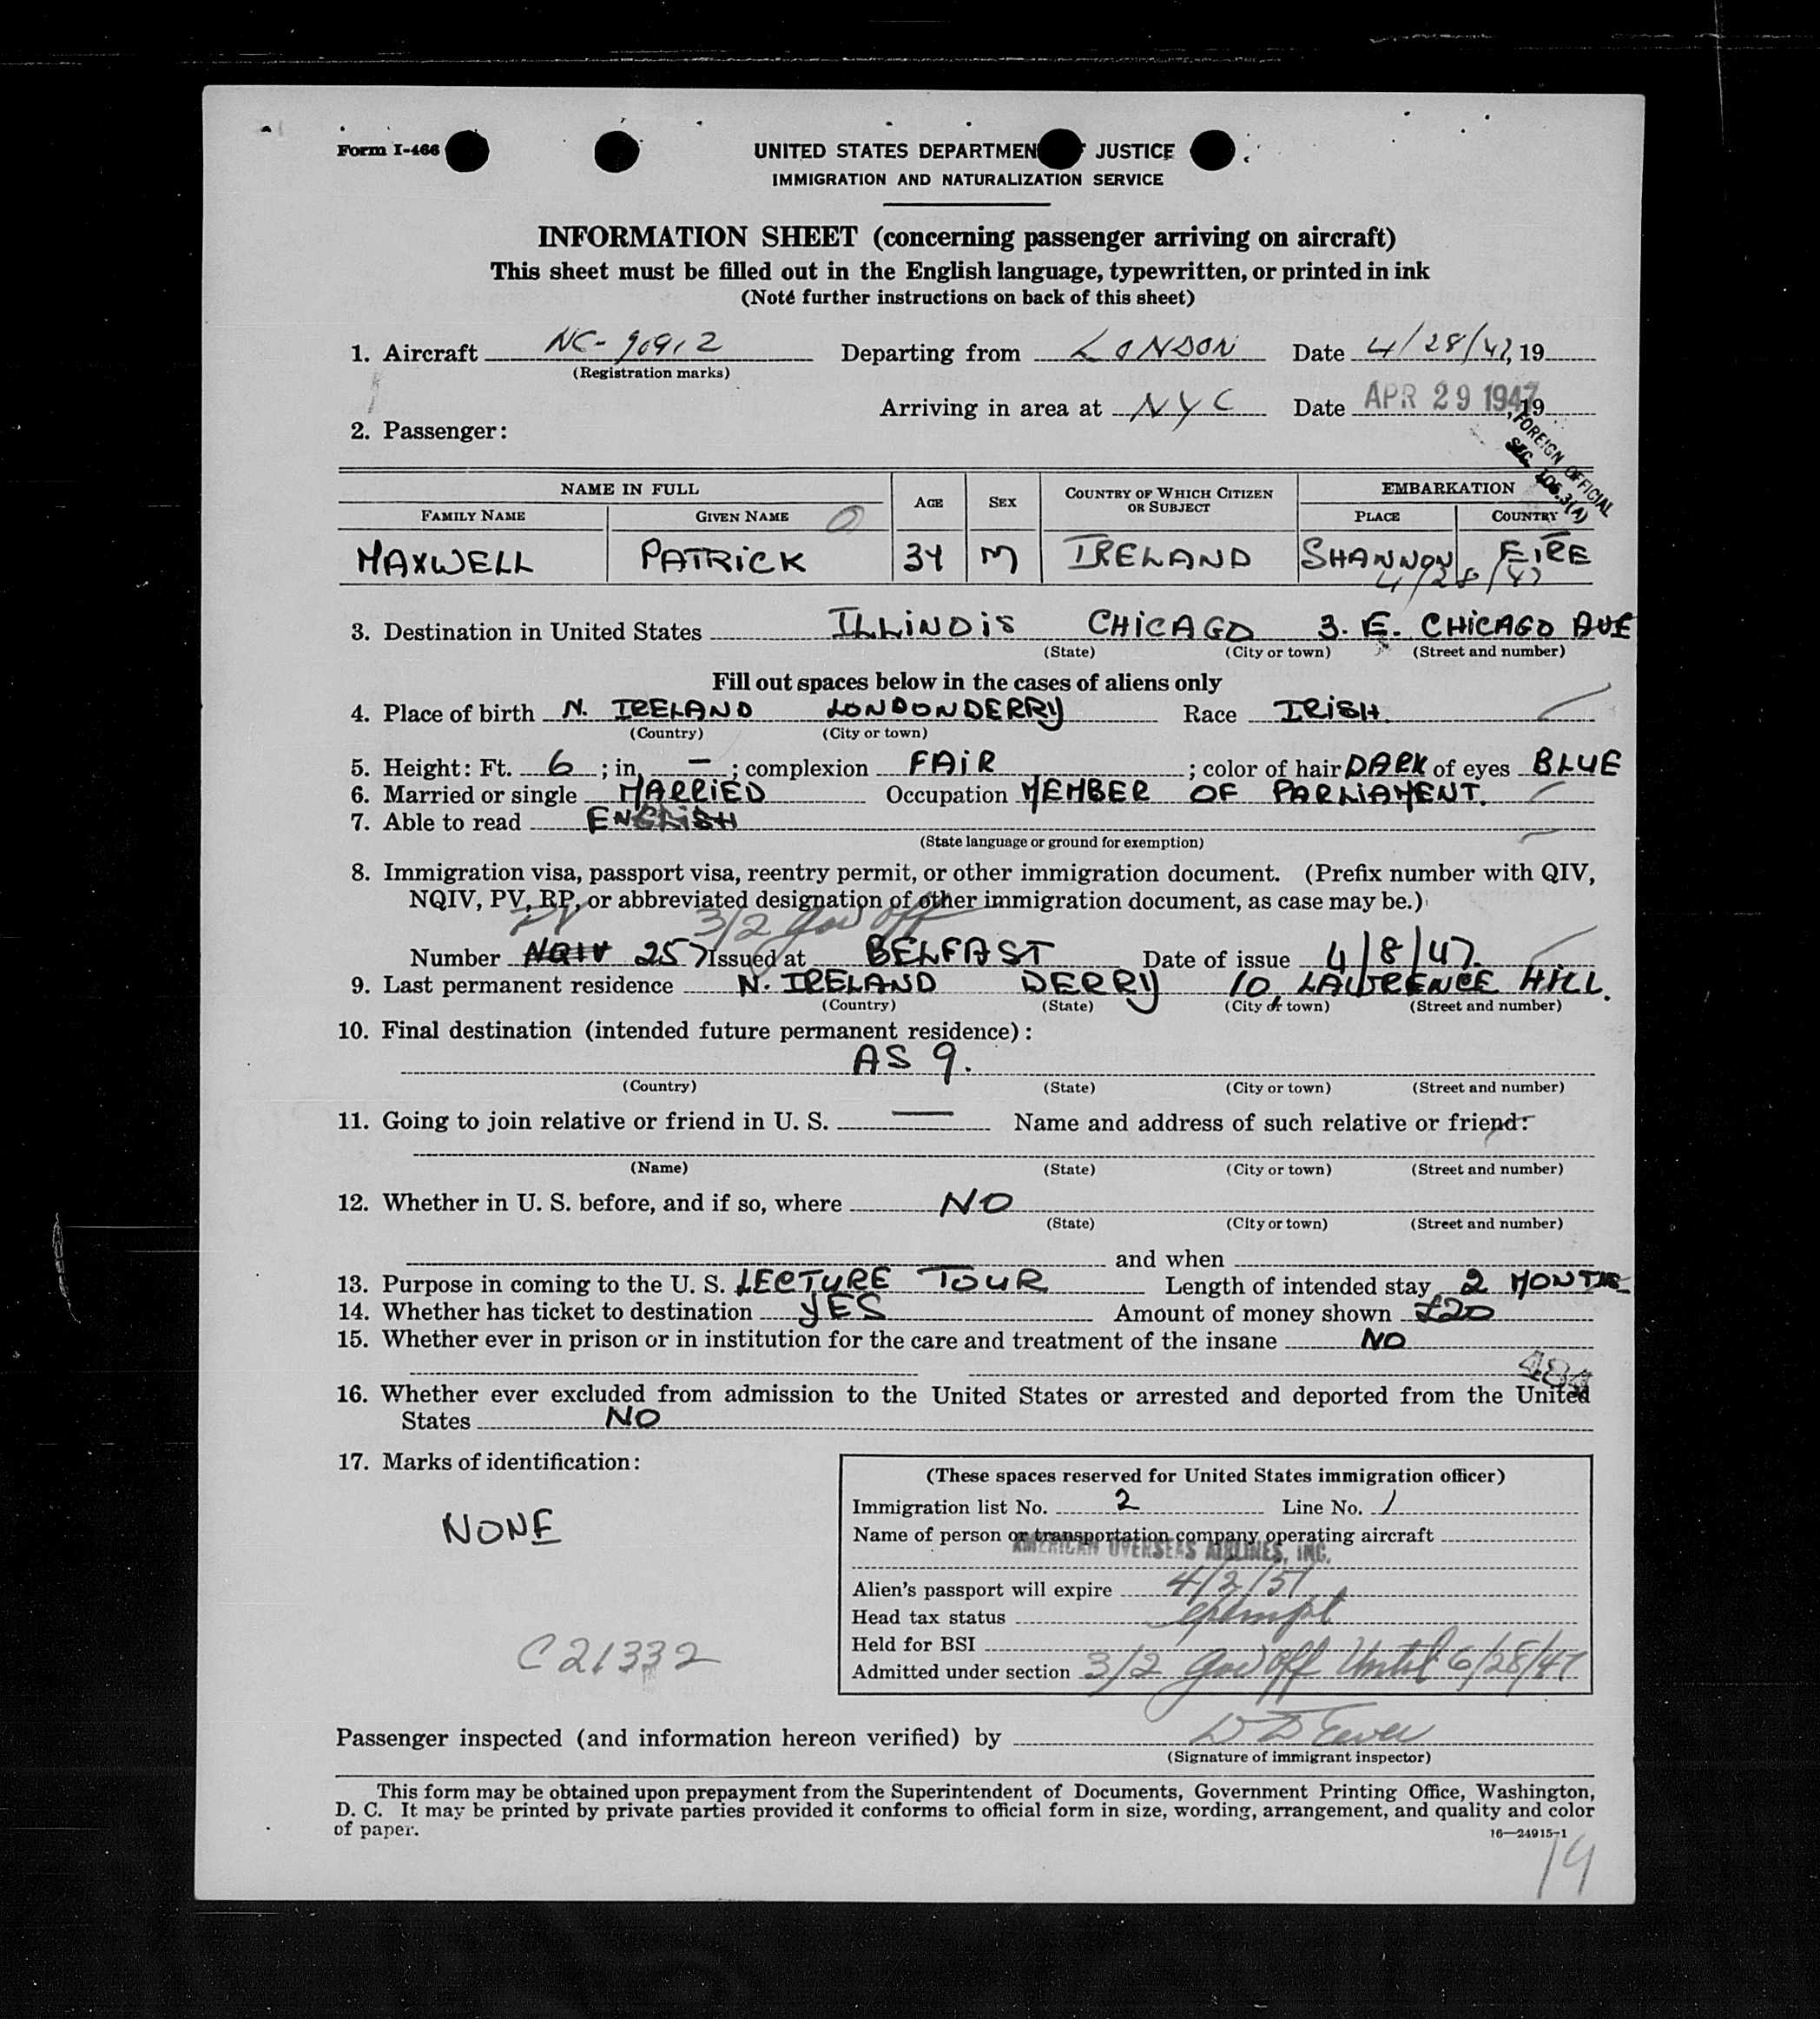 Form I-466
UNITED STATES DEPARTMEN JUSTICE
IMMIGRATION AND NATURALIZATION SERVICE
INFORMATION SHEET (concerning passenger arriving on aircraft)
This sheet must be filled out in the English language, typewritten, or printed in ink
(Note further instructions on back of this sheet)
1. Aircraft NC-90912 Departing from LONDON Date 4/28/47, 19
(Registration marks)
Arriving in area at NYC Date APR 29 1947, 19
2. Passenger:
FOREIGN OFFICIAL
SEC. 105.3(4)
NAME IN FULL AGE SEX COUNTRY OF WHICH CITIZEN OR SUBJECT EMBARKATION
FAMILY NAME GIVEN NAME PLACE COUNTRY
MAXWELL PATRICK 34 M IRELAND SHANNON EIRE
4/28/47
3. Destination in United States ILLINOIS CHICAGO 3. E. CHICAGO AVE
(State) (City or town) (Street and number)
Fill out spaces below in the cases of aliens only
4. Place of birth N. IRELAND LONDONDERRY Race IRISH.
(Country) (City or town)
5. Height: Ft. 6 ; in. – ; complexion FAIR ; color of hair DARK of eyes BLUE
6. Married or single MARRIED Occupation MEMBER OF PARLIAMENT.
7. Able to read ENGLISH
(State language or ground for exemption)
8. Immigration visa, passport visa, reentry permit, or other immigration document. (Prefix number with QIV,
NQIV, PV, RP, or abbreviated designation of other immigration document, as case may be.)
PV 3/2 gov off
Number NQIV 257 Issued at BELFAST Date of issue 4/8/47.
9. Last permanent residence N. IRELAND DERRY 10, LAWRENCE HILL.
(Country) (State) (City or town) (Street and number)
10. Final destination (intended future permanent residence):
AS 9.
(Country) (State) (City or town) (Street and number)
11. Going to join relative or friend in U. S. — Name and address of such relative or friend:
(Name) (State) (City or town) (Street and number)
12. Whether in U. S. before, and if so, where NO
(State) (City or town) (Street and number)
and when
13. Purpose in coming to the U. S. LECTURE TOUR Length of intended stay 2 MONTHS
14. Whether has ticket to destination YES Amount of money shown £20
15. Whether ever in prison or in institution for the care and treatment of the insane NO
484
16. Whether ever excluded from admission to the United States or arrested and deported from the United
States NO
17. Marks of identification:
NONE
C21332
(These spaces reserved for United States immigration officer)
Immigration list No. 2 Line No. 1
Name of person or transportation company operating aircraft
AMERICAN OVERSEAS AIRLINES, INC.
Alien's passport will expire 4/2/51
Head tax status exempt
Held for BSI
Admitted under section 3/2 gov off Until 6/28/47
Passenger inspected (and information hereon verified) by
(Signature of immigrant inspector)
This form may be obtained upon prepayment from the Superintendent of Documents, Government Printing Office, Washington,
D. C. It may be printed by private parties provided it conforms to official form in size, wording, arrangement, and quality and color
of paper.
16—24915-1
19